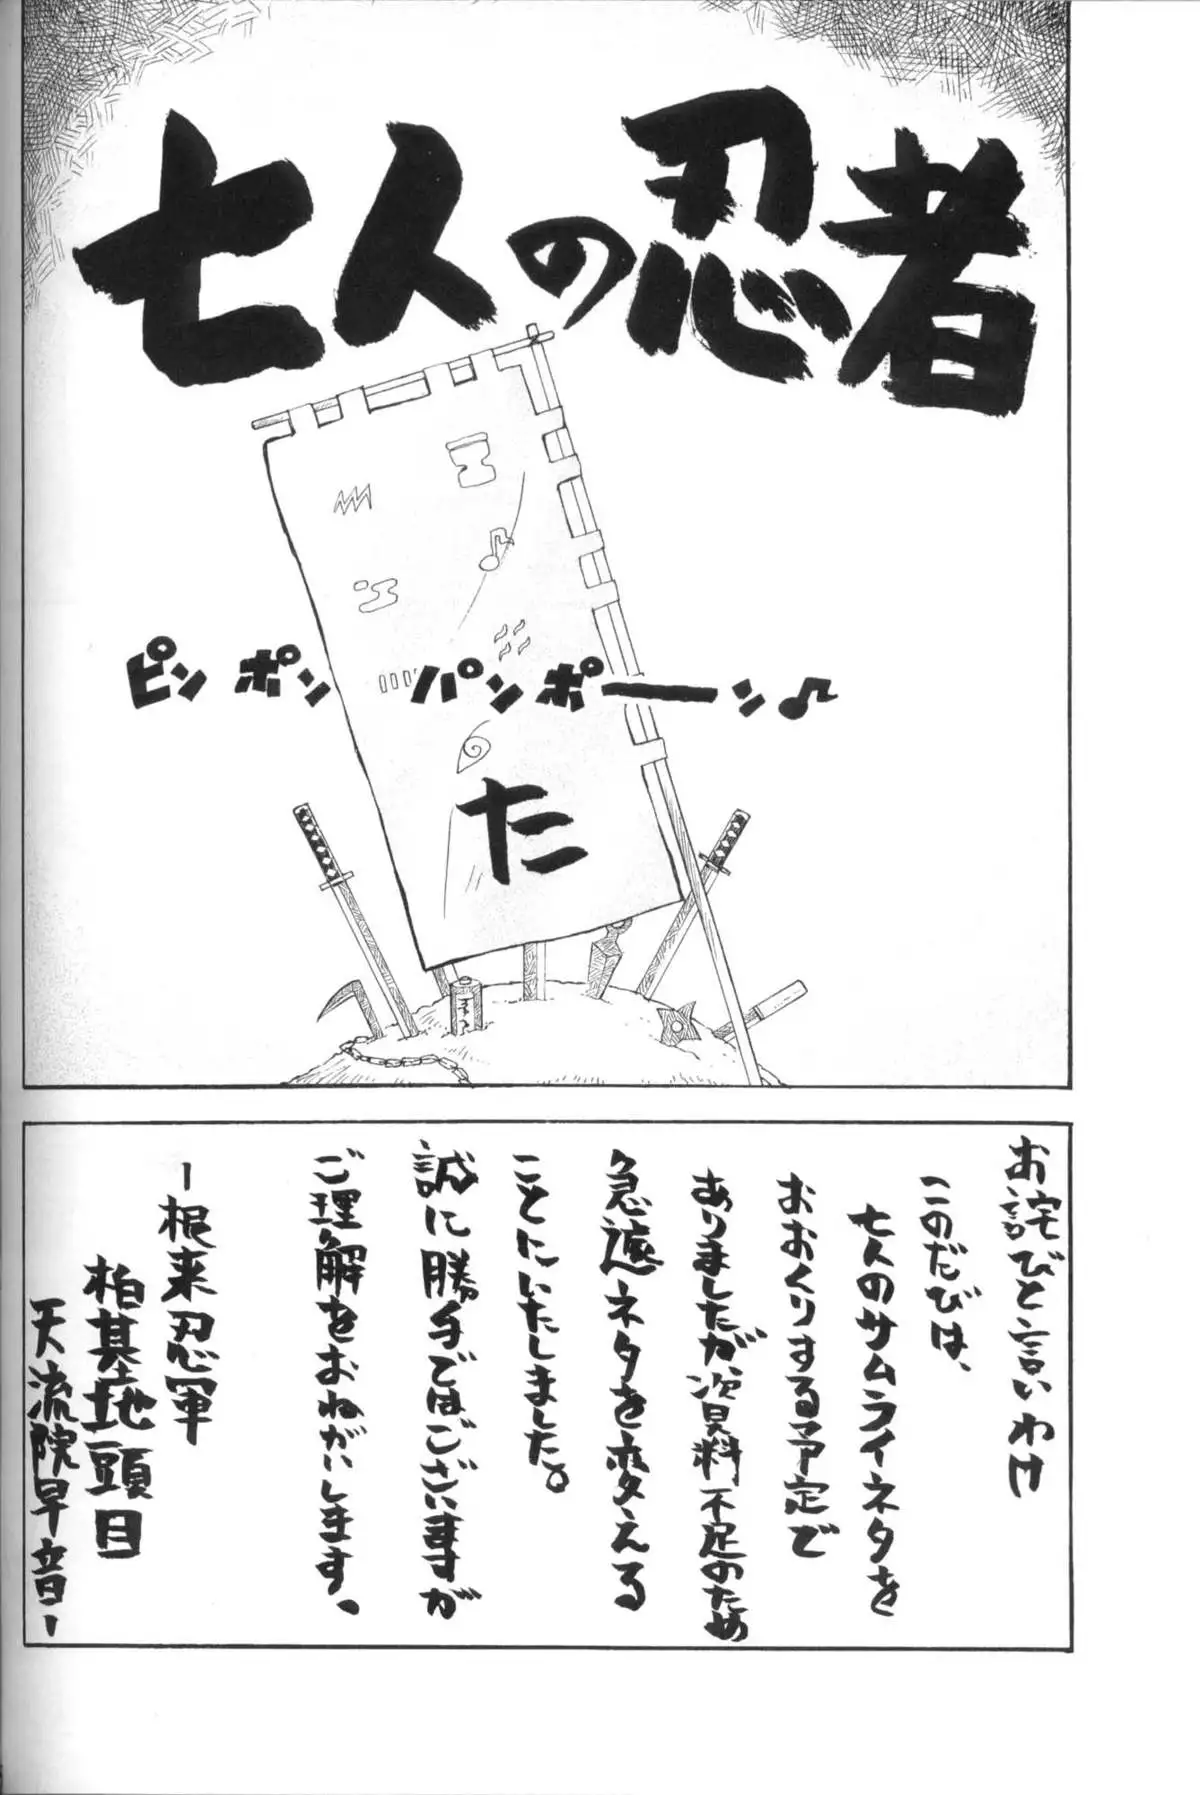 七人の忍者
ピンポンパンポーン♪
た
お詫びと言いわけ
このたびは、
七人のサムライネタを
おおくりする予定で
ありましたが、資料不足のため
急遽ネタを変える
ことにいたしました。
誠に勝手ではございますが
ご理解をおねがいします。
－根来忍軍
柏基地頭目
天流院早音－